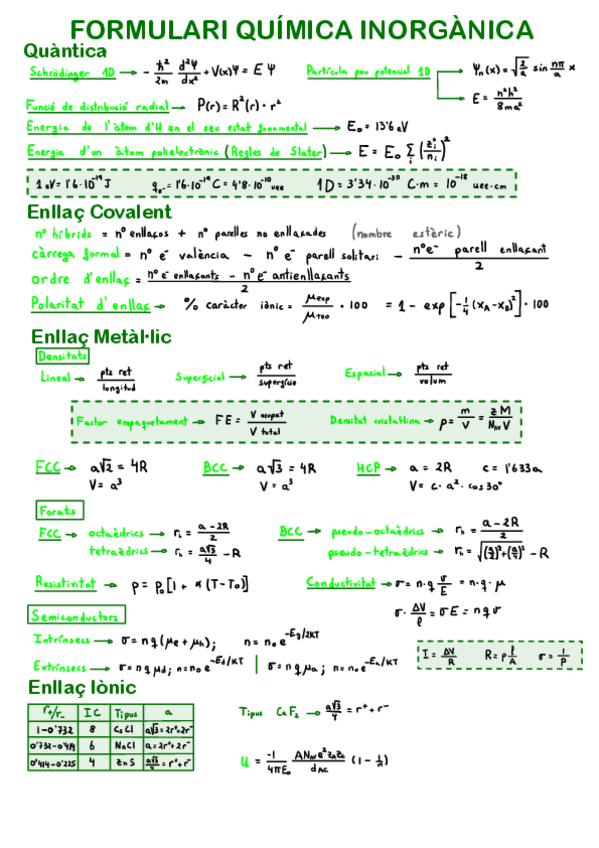 FORMULARI QUÍMICA INORGÀNICA
Quàntica
Schrödinger 1D → - ℏ²/2m d²Ψ/dx² + V(x)Ψ = E Ψ
Partícula pou potencial 1D → Ψn(x) = √(2/a) sin nπ/a x
→ E = n²h²/8ma²
Funció de distribució radial → P(r) = R²(r) · r²
Energia de l'àtom d'H en el seu estat fonamental → E₀ = 13'6 eV
Energia d'un àtom polielectrònic (Regles de Slater) → E = E₀ Σi (zi*/ni)²
1 eV = 1'6·10⁻¹⁹ J qe- = 1'6·10⁻¹⁹ C = 4'8·10⁻¹⁰ uee 1D = 3'34·10⁻³⁰ C·m = 10⁻¹⁸ uee·cm
Enllaç Covalent
nº híbrids = nº enllaços + nº parelles no enllaçades (nombre estèric)
càrrega formal = nº e⁻ valència - nº e⁻ parell solitari - nºe⁻ parell enllaçant / 2
ordre d'enllaç = nº e⁻ enllaçants - nº e⁻ antienllaçants / 2
Polaritat d'enllaç → % caràcter iònic = μexp/μteo · 100 = 1 - exp[-1/4 (xA-xB)²] · 100
Enllaç Metàl·lic
Densitats
Lineal → pts ret / longitud Superficial → pts ret / superfície Espacial → pts ret / volum
Factor empaquetament → FE = V ocupat / V total Densitat cristal·lina → ρ = m/V = zM/NAVV
FCC → a√2 = 4R BCC → a√3 = 4R HCP → a = 2R c = 1'633a
V = a³ V = a³ V = c·a²·cos30°
Forats
FCC → octaèdrics → rh = a-2R / 2 BCC → pseudo-octaèdrics → rh = a-2R / 2
tetraèdrics → rh = a√3/4 - R pseudo-tetraèdrics → rh = √((a/2)²+(a/4)²) - R
Resistivitat → ρ = ρ₀ [1 + α (T-T₀)] Conductivitat → σ = n·q v/E = n·q·μ
σ · ΔV/ℓ = σE = nqv
Semiconductors
Intrínsecs → σ = nq(μe + μh); n = n₀ e^-Eg/2KT
I = ΔV/R R = ρ ℓ/A σ = 1/ρ
Extrínsecs → σ = nqμd; n = n₀ e^-Ed/KT | σ = nqμa; n = n₀ e^-Ea/KT
Enllaç Iònic
r+/r- IC Tipus a
1-0'732 8 CsCl a√3 = 2r⁺+2r⁻
0'732-0'414 6 NaCl a = 2r⁺+2r⁻
0'414-0'225 4 ZnS a√3/4 = r⁺+r⁻
Tipus CaF₂ → a√3/4 = r⁺+r⁻
U = -1/4πE₀ ANAVe²zAzC/dAC (1-1/n)